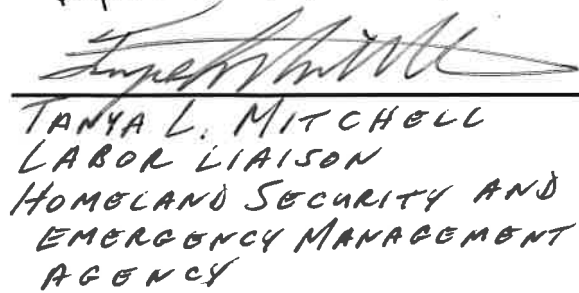 TANYA L. MITCHELL
LABOR LIAISON
HOMELAND SECURITY AND
EMERGENCY MANAGEMENT
AGENCY